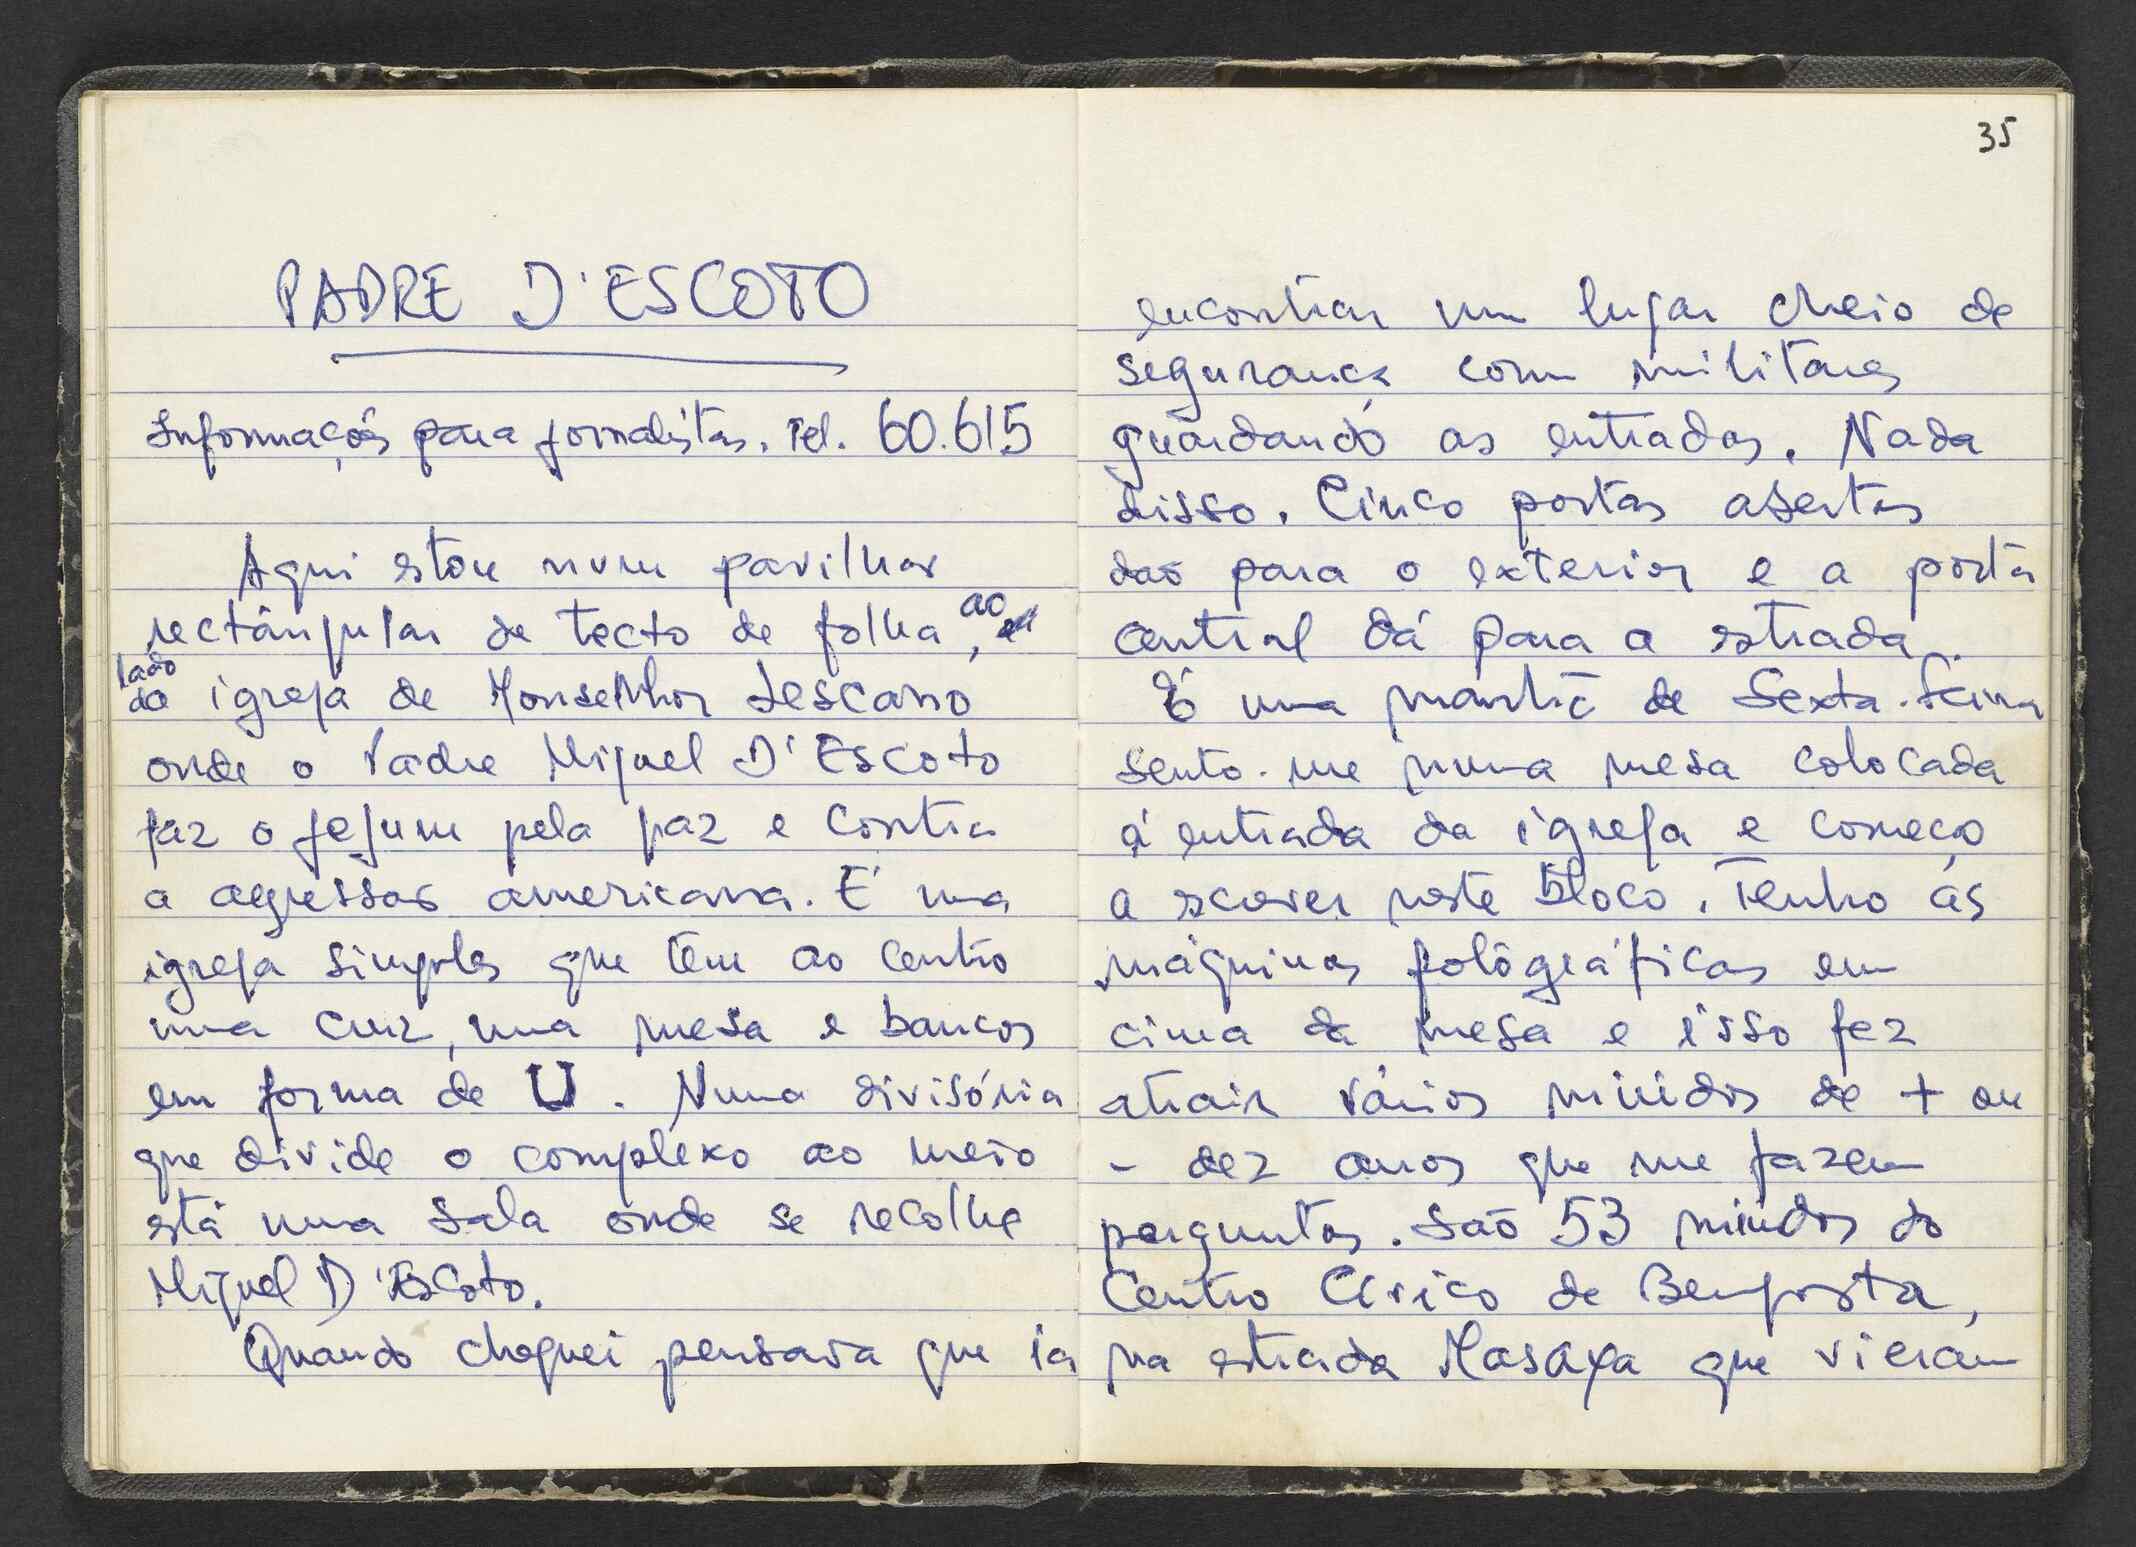 PADRE D'ESCOTO
Informações para jornalistas. Tel. 60.615
Aqui estou num pavilhão
rectângular de tecto de folha, ao
lado
da igreja de Monsenhor Lescano
onde o Padre Miguel D'Escoto
faz o jejum pela paz e contra
a agressão americana. É uma
igreja simples que tem ao centro
uma cruz, uma mesa e bancos
em forma de U. Numa divisória
que divide o complexo ao meio
está uma sala onde se recolhe
Miguel D'Escoto.
Quando cheguei pensava que ia
35
encontrar um lugar cheio de
segurança com militares
guardando as entradas. Nada
disso. Cinco portas abertas
dão para o exterior e a porta
central dá para a estrada.
É uma manhã de Sexta-feira
sento-me numa mesa colocada
à entrada da igreja e começo
a escrever neste bloco. Tenho as
máquinas fotográficas em
cima da mesa e isso fez
atrair vários miúdos de + ou
- dez anos que me fazem
perguntas. São 53 miúdos do
Centro Cívico de Bemposta,
na estrada Masaya que vieram